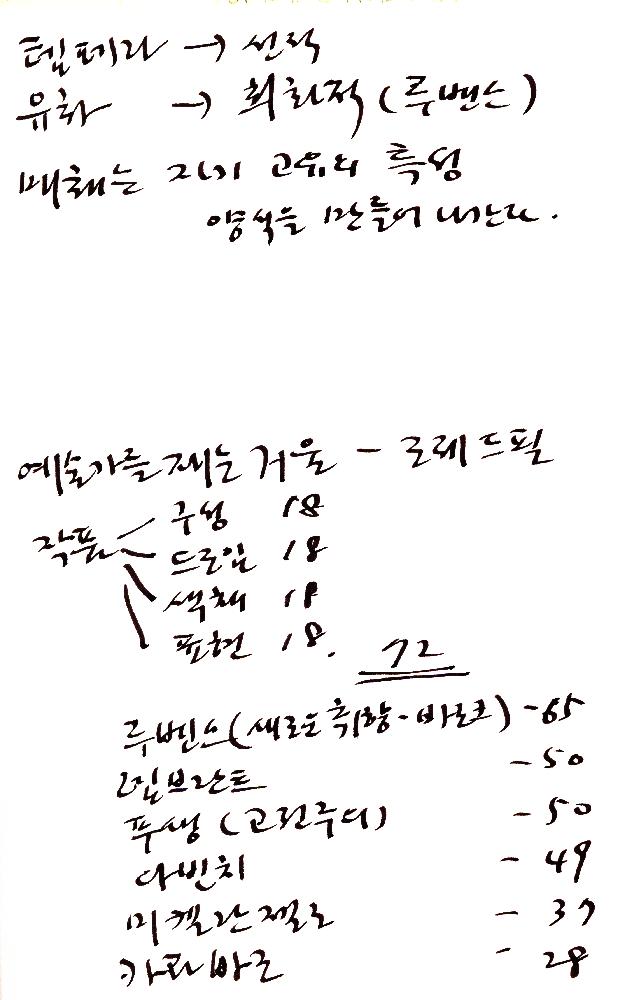 템페라 → 선적
유화 → 회화적 (루벤스)
매체는 자기 고유의 특성
양식을 만들어 내는다.
예술가를 재는 저울 - 로레 드 필
작품 구성 18
드로잉 18
색채 18
표현 18.
72
루벤스 (새로운 취향 - 바로크) - 65
렘브란트 - 50
푸생 (고전주의) - 50
다빈치 - 49
미켈란젤로 - 37
카라바조 - 28